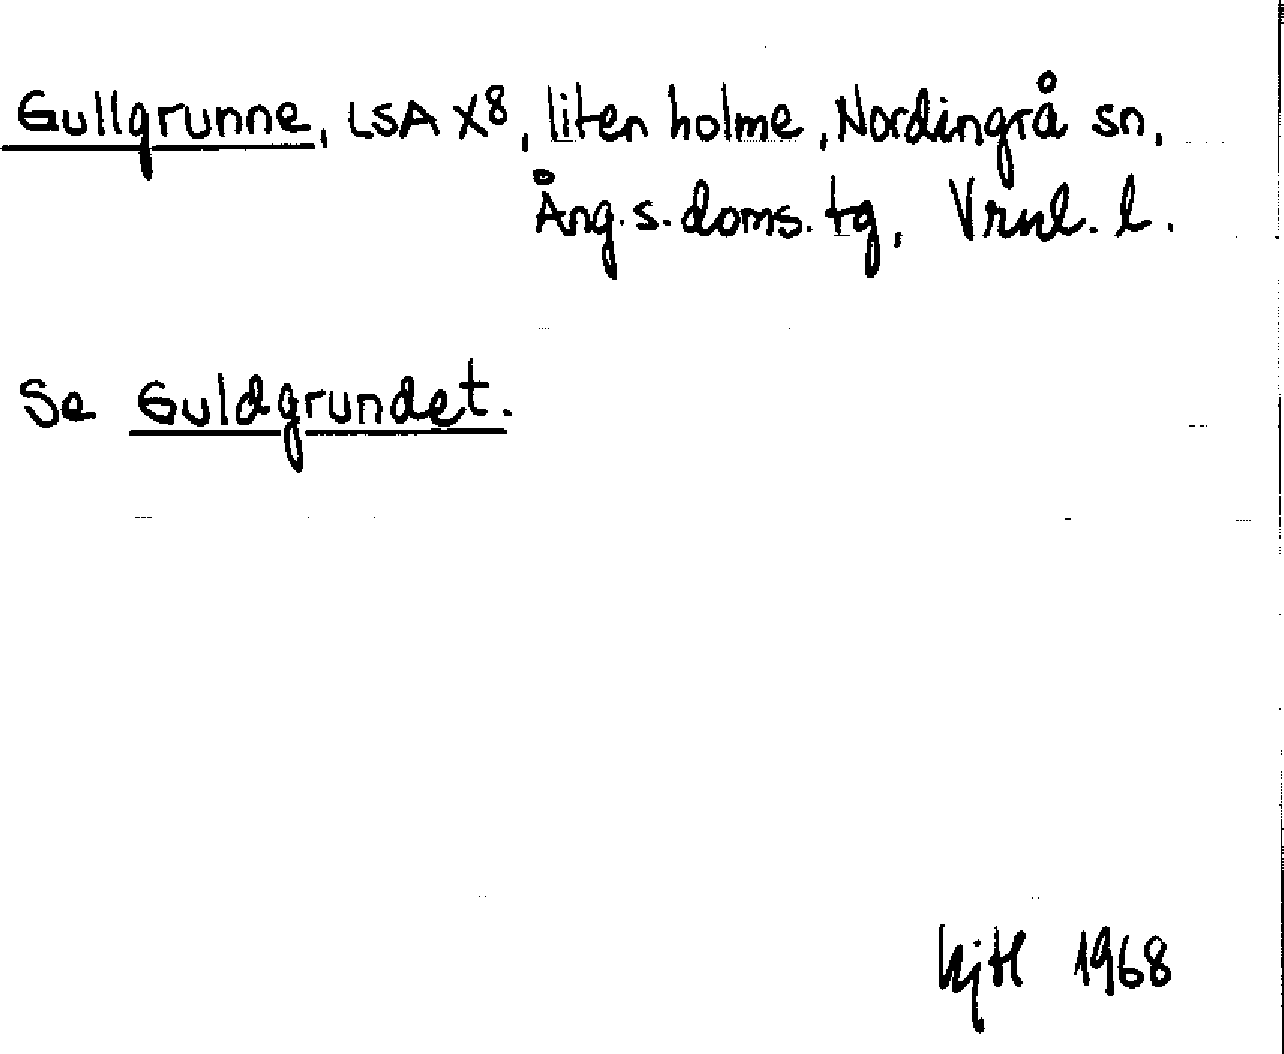 Gullgrunne, LSA X8, liten holme, Nordingrå sn,
Ång.s.doms.tg, Vrnl. l.
Se Guldgrundet.
1968